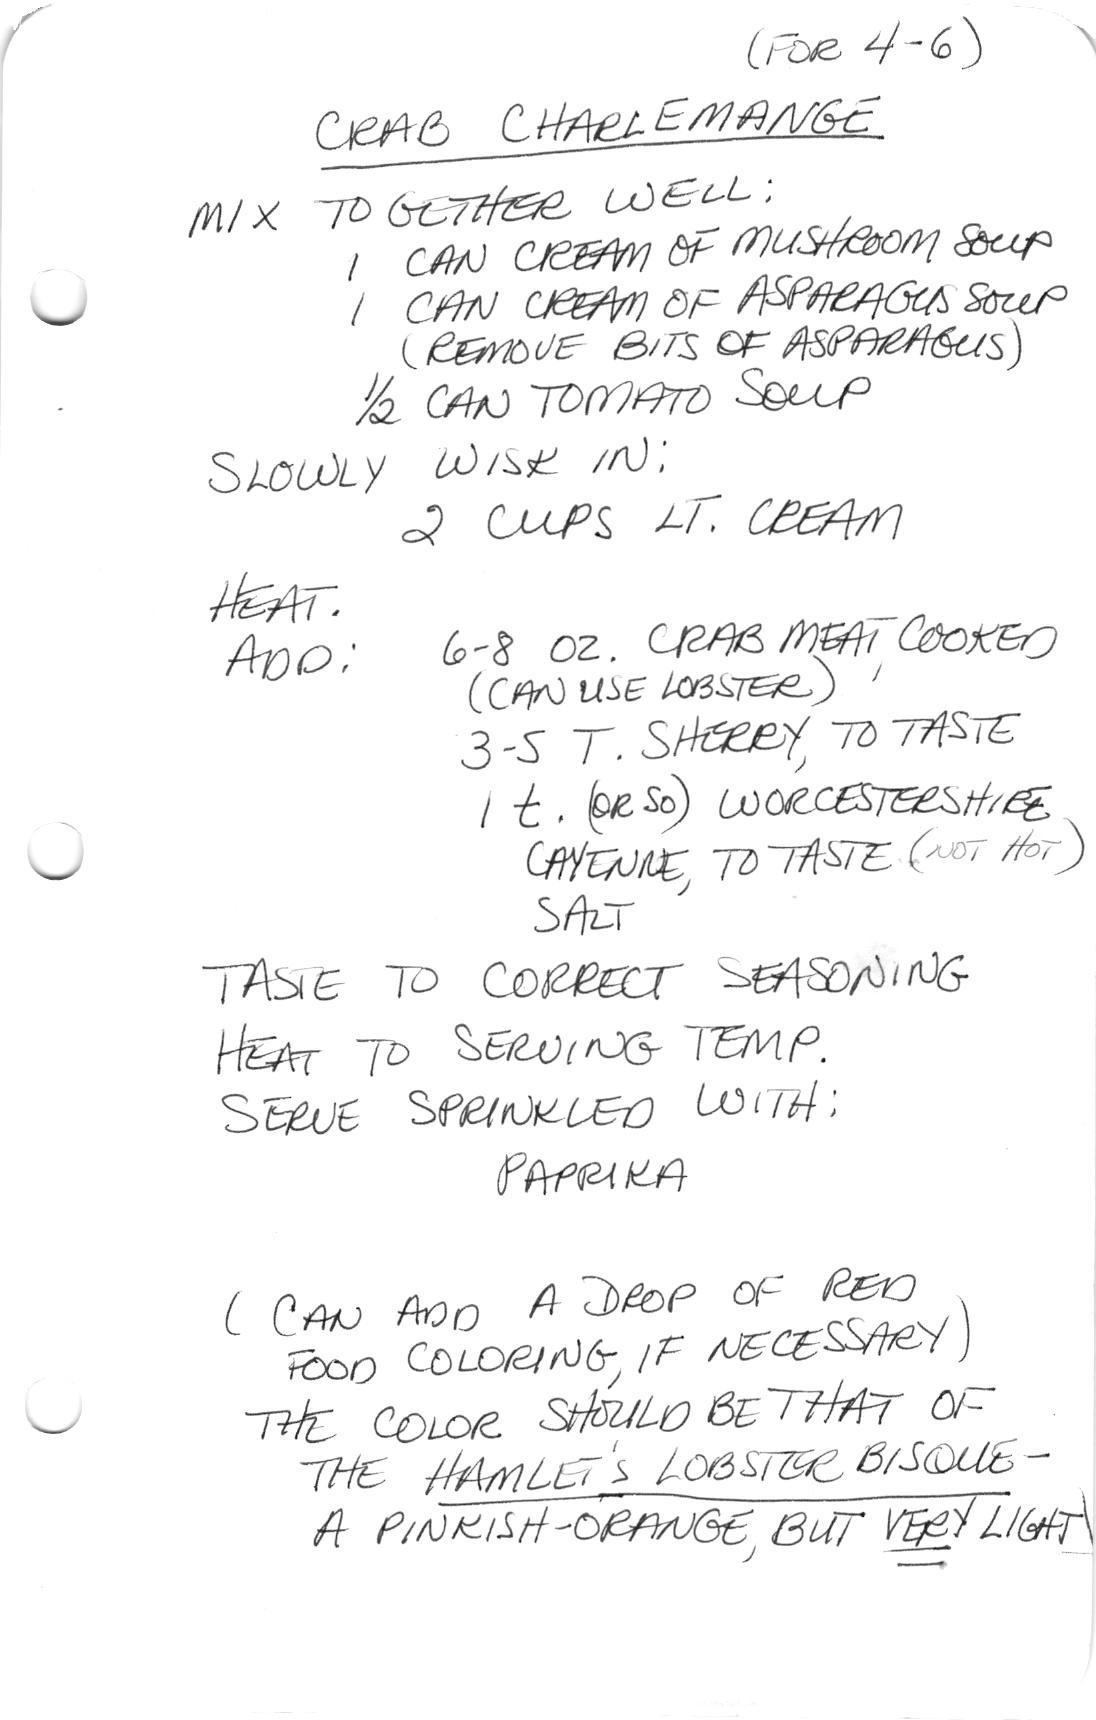 (FOR 4-6)
CRAB CHARLEMANGE
MIX TOGETHER WELL:
1 CAN CREAM OF MUSHROOM SOUP
1 CAN CREAM OF ASPARAGUS SOUP
(REMOVE BITS OF ASPARAGUS)
1/2 CAN TOMATO SOUP
SLOWLY WISK IN:
2 CUPS LT. CREAM
HEAT.
ADD: 6-8 OZ. CRAB MEAT, COOKED
(CAN USE LOBSTER)
3-5 T. SHERRY, TO TASTE
1 t. (OR SO) WORCESTERSHIRE
CAYENNE, TO TASTE (NOT HOT)
SALT
TASTE TO CORRECT SEASONING
HEAT TO SERVING TEMP.
SERVE SPRINKLED WITH:
PAPRIKA
(CAN ADD A DROP OF RED
FOOD COLORING, IF NECESSARY)
THE COLOR SHOULD BE THAT OF
THE HAMLET'S LOBSTER BISQUE -
A PINKISH-ORANGE, BUT VERY LIGHT)